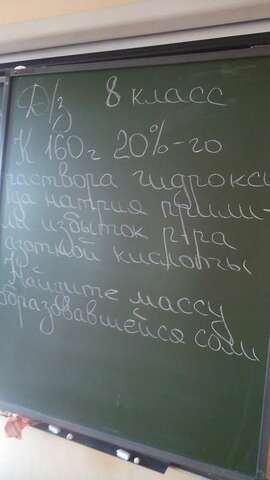 Д/з 8 класс
К 160 г 20%-го
раствора гидрокси
да натрия прили-
ли избыток р-ра
азотной кислоты
Найдите массу
образовавшейся соли